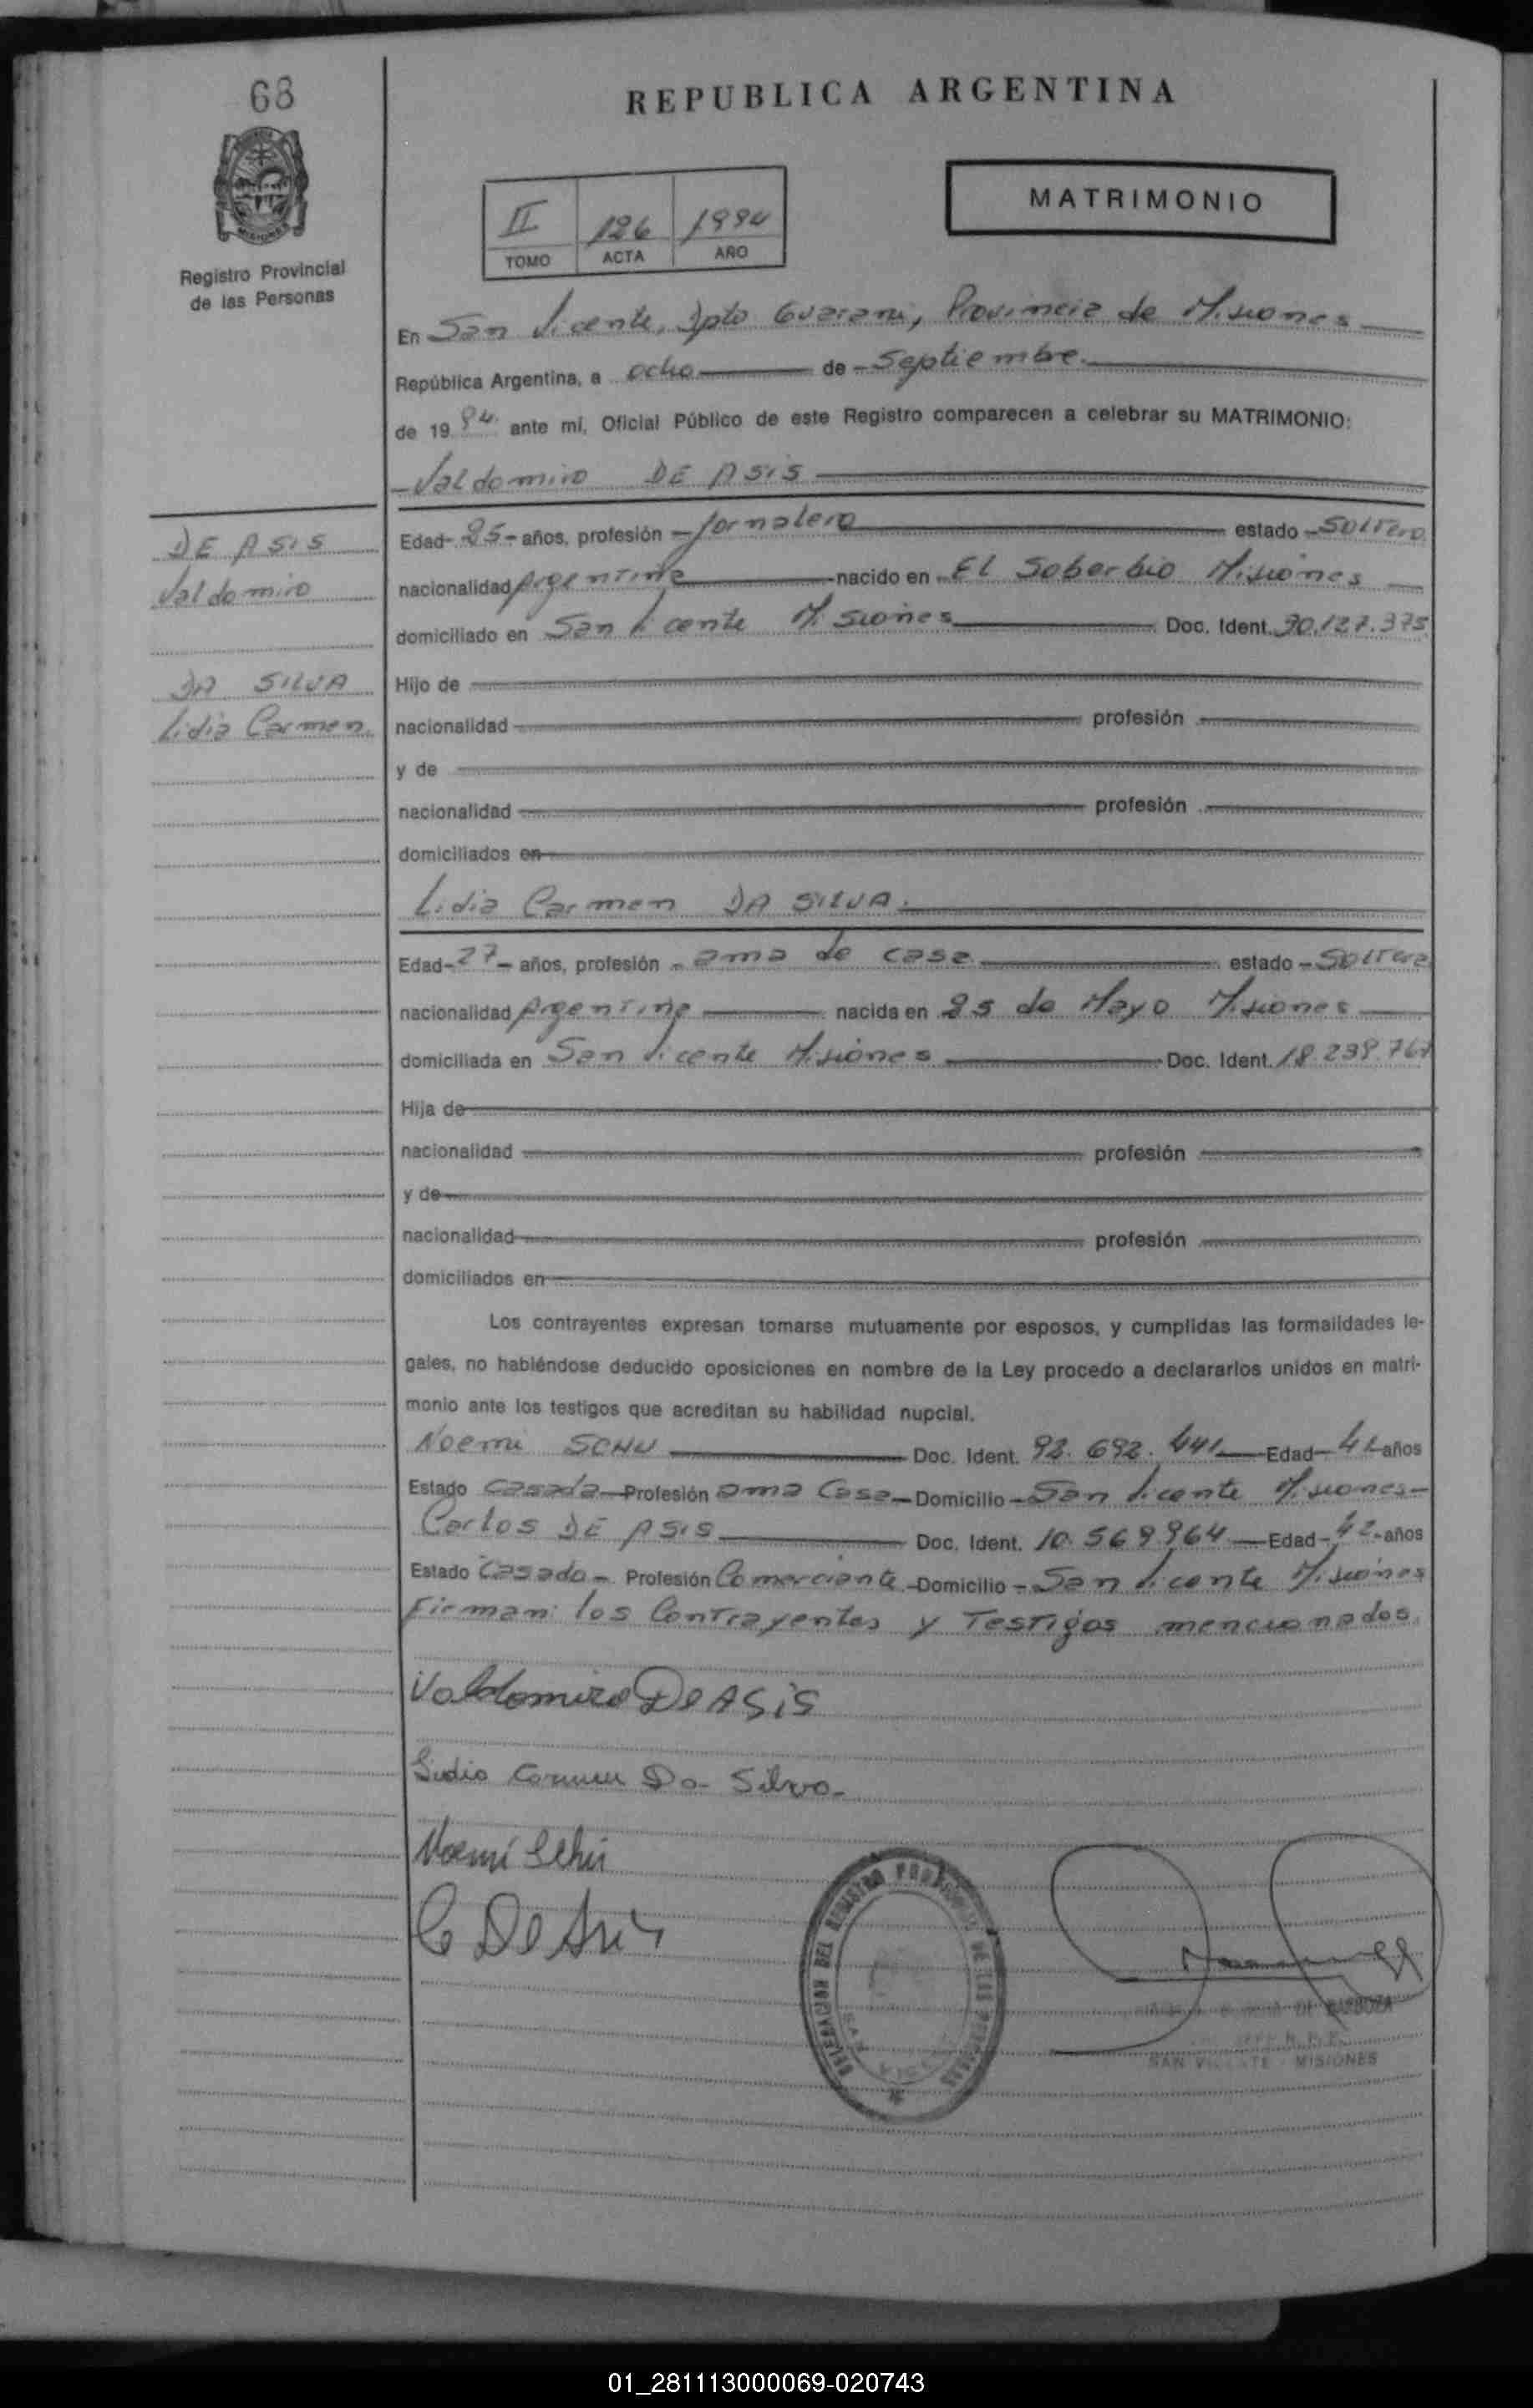 68
REPUBLICA ARGENTINA
MATRIMONIO
II 126 1994
TOMO ACTA AÑO
Registro Provincial
de las Personas
En San Vicente, Dpto Guarani, Provincia de Misiones
República Argentina, a ocho de Septiembre
de 19 94 ante mí, Oficial Público de este Registro comparecen a celebrar su MATRIMONIO:
Valdomiro DE ASIS
DE ASIS
Valdomiro
DA SILVA
Lidia Carmen
Edad 25 años, profesión Jornalero estado Soltero
nacionalidad Argentina nacido en El Soberbio Misiones
domiciliado en San Vicente Misiones Doc. Ident. 30.127.375
Hijo de
nacionalidad profesión
y de
nacionalidad profesión
domiciliados en
Lidia Carmen DA SILVA.
Edad 27 años, profesión ama de casa estado Soltera
nacionalidad Argentina nacida en 25 de Mayo Misiones
domiciliada en San Vicente Misiones Doc. Ident. 18.239.767
Hija de
nacionalidad profesión
y de
nacionalidad profesión
domiciliados en
Los contrayentes expresan tomarse mutuamente por esposos, y cumplidas las formalidades le-
gales, no habiéndose deducido oposiciones en nombre de la Ley procedo a declararlos unidos en matri-
monio ante los testigos que acreditan su habilidad nupcial.
Noemi Doc. Ident. 92.692.441 Edad 41 años
Estado Casada Profesión ama Casa Domicilio San Vicente Misiones
Carlos DE ASIS Doc. Ident. 10.569.964 Edad 42 años
Estado Casado Profesión Comerciante Domicilio San Vicente Misiones
Firman los Contrayentes y Testigos mencionados.
Valdomiro De ASiS
Lidia Carmen Da Silva
Noemí
C De Asis
DELEGACION DEL REGISTRO PROVINCIAL DE LAS PERSONAS
SAN VICENTE
DE BARBOZA
SAN VICENTE MISIONES
01_281113000069-020743